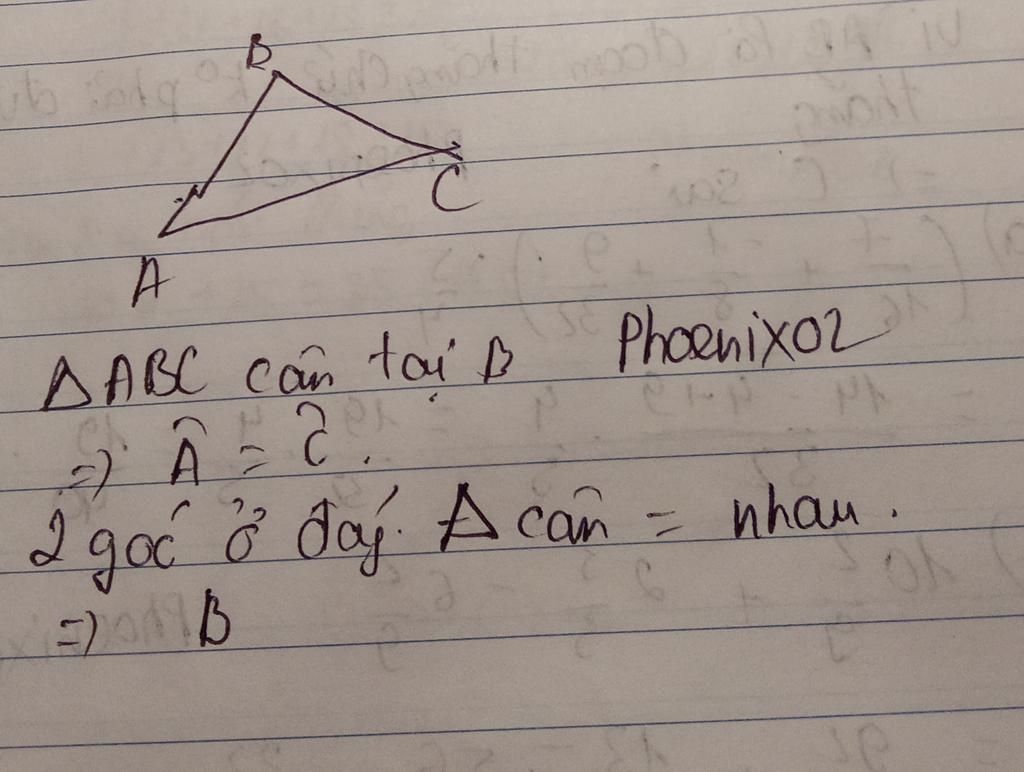 B
C
A
Δ ABC cân tại B Phoenix02
=) Â = Ĉ.
2 góc ở đáy. Δ cân = nhau.
=) B